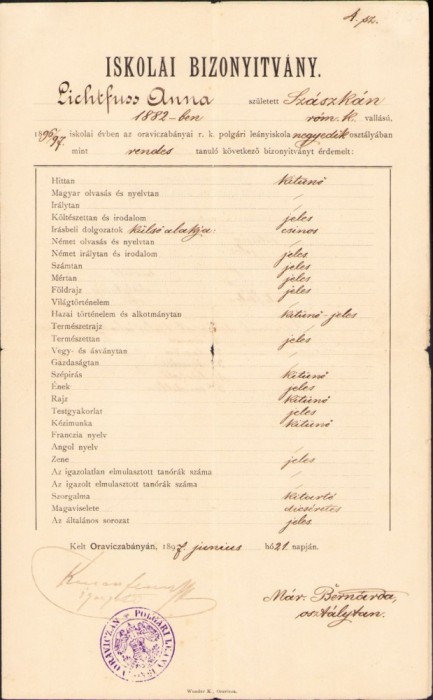 4. sz.
ISKOLAI BIZONYITVÁNY.
Lichtfuss Anna született Szászkán
1882-ben róm. k. vallású,
1896/97. iskolai évben az oraviczabányai r. k. polgári leányiskola negyedik osztályában
mint rendes tanuló következő bizonyitványt érdemelt:
Hittan kitünő
Magyar olvasás és nyelvtan /
Irálytan /
Költészettan és irodalom jeles
Irásbeli dolgozatok külső alakja: csinos
Német olvasás és nyelvtan /
Német irálytan és irodalom jeles
Számtan jeles
Mértan jeles
Földrajz jeles
Világtörténelem /
Hazai történelem és alkotmánytan kitünő-jeles
Természetrajz /
Természettan jeles
Vegy- és ásványtan /
Gazdaságtan /
Szépirás kitünő
Ének jeles
Rajz kitünő
Testgyakorlat jeles
Kézimunka kitünő
Franczia nyelv
Angol nyelv
Zene jeles
Az igazolatlan elmulasztott tanórák száma /
Az igazolt elmulasztott tanórák száma /
Szorgalma kitartó
Magaviselete dicséretes
Az általános sorozat jeles
Kelt Oraviczabányán, 1897. junius hó 21 napján.
Már. Bernarda,
osztálytan.
POLGÁRI LEÁNYISKOLA ORAVICZÁN
Wunder K., Oravicza.